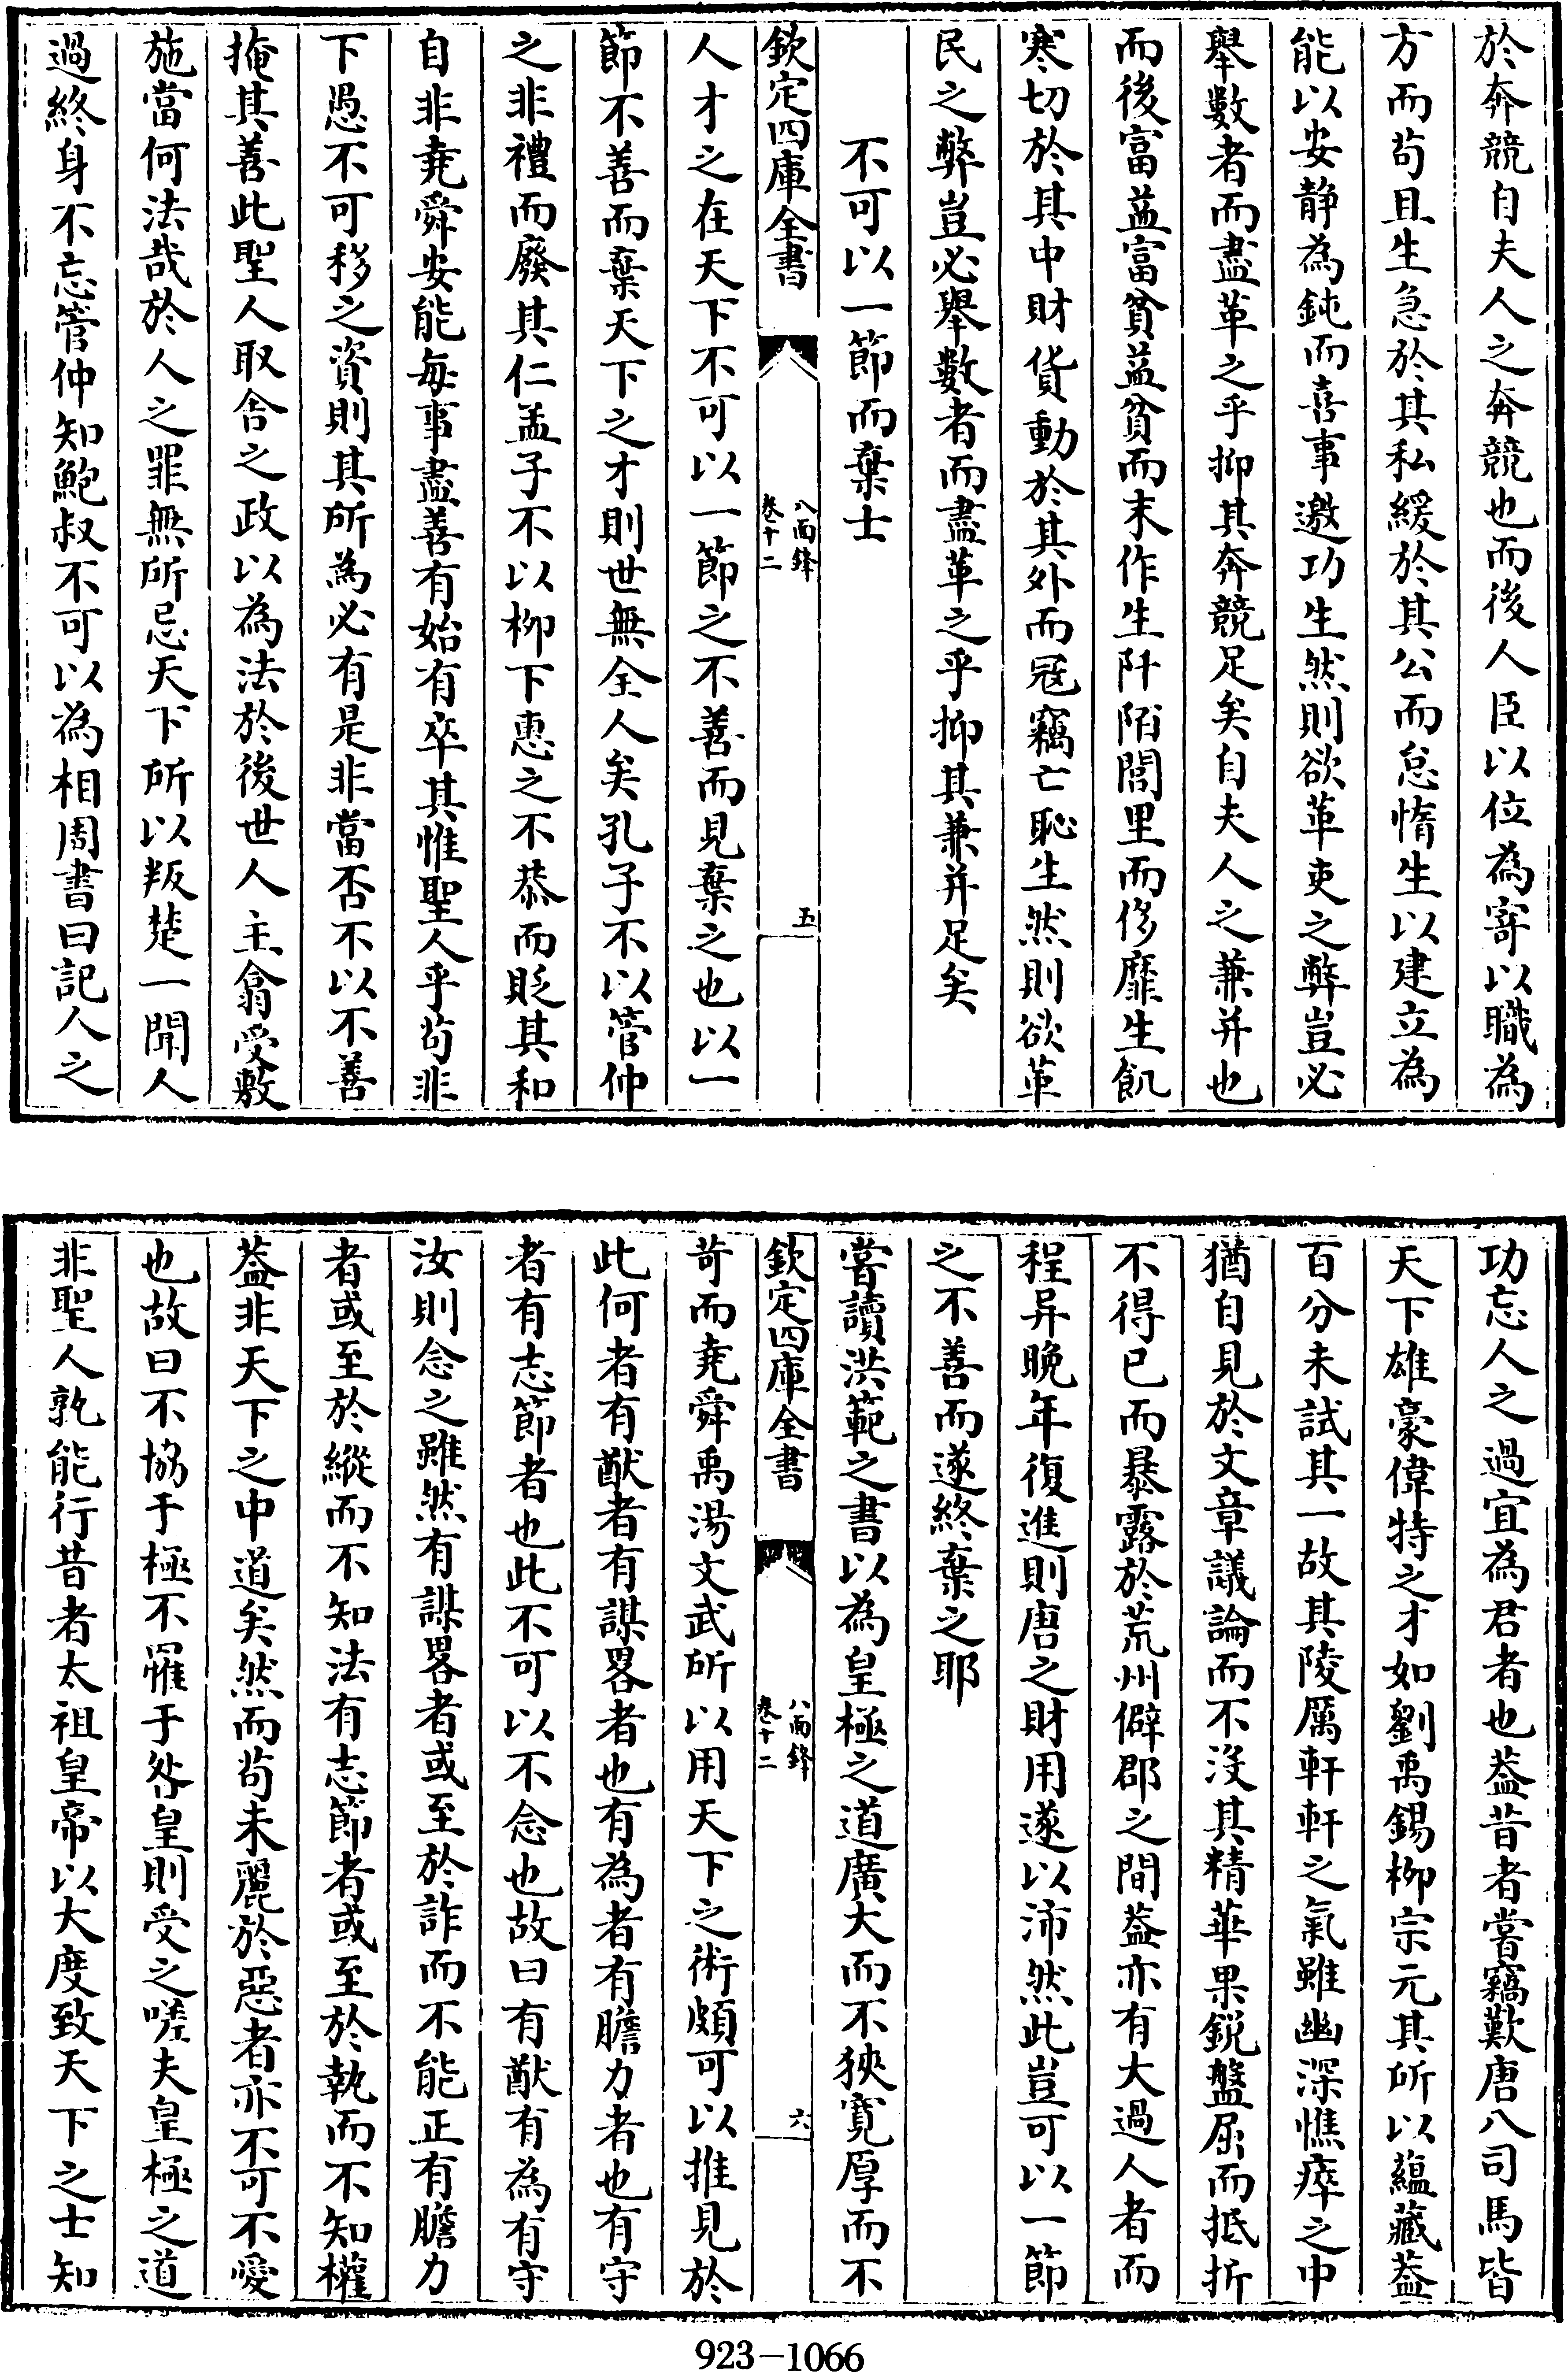 於奔競自夫人之奔競也而後人臣以位為寄以職為
方而苟且生急於其私緩於其公而怠惰生以建立為
能以安靜為鈍而喜事邀功生然則欲革吏之弊豈必
舉數者而盡革之乎抑其奔競足矣自夫人之兼并也
而後富益富貧益貧而末作生阡陌閭里而侈靡生飢
寒切於其中財貨動於其外而冦竊亡恥生然則欲革
民之弊豈必舉數者而盡革之乎抑其兼并足矣
不可以一節而棄士
欽定四庫全書
八面鋒
卷十二
五
人才之在天下不可以一節之不善而見棄之也以一
節不善而棄天下之才則世無全人矣孔子不以管仲
之非禮而廢其仁孟子不以柳下惠之不恭而貶其和
自非堯舜安能每事盡善有始有卒其惟聖人乎苟非
下愚不可移之資則其所為必有是非當否不以不善
掩其善此聖人取舍之政以為法於後世人主翕受敷
施當何法哉於人之罪無所忌天下所以叛楚一聞人
過終身不忘管仲知鮑叔不可以為相周書曰記人之
功忘人之過宜為君者也葢昔者嘗竊歎唐八司馬皆
天下雄豪偉特之才如劉禹錫柳宗元其所以蘊藏葢
百分未試其一故其陵厲軒軒之氣雖幽深憔瘁之中
猶自見於文章議論而不沒其精華果鋭盤屈而抵折
不得已而暴露於荒州僻郡之間葢亦有大過人者而
程异晚年復進則唐之財用遂以沛然此豈可以一節
之不善而遂終棄之耶
嘗讀洪範之書以為皇極之道廣大而不狹寬厚而不
欽定四庫全書
八面鋒
卷十二
六
苛而堯舜禹湯文武所以用天下之術頗可以推見於
此何者有猷者有謀畧者也有為者有膽力者也有守
者有志節者也此不可以不念也故曰有猷有為有守
汝則念之雖然有謀畧者或至於詐而不能正有膽力
者或至於縱而不知法有志節者或至於執而不知權
葢非天下之中道矣然而苟未麗於惡者亦不可不愛
也故曰不恊于極不罹于咎皇則受之嗟夫皇極之道
非聖人孰能行昔者太祖皇帝以大度致天下之士知
923-1066